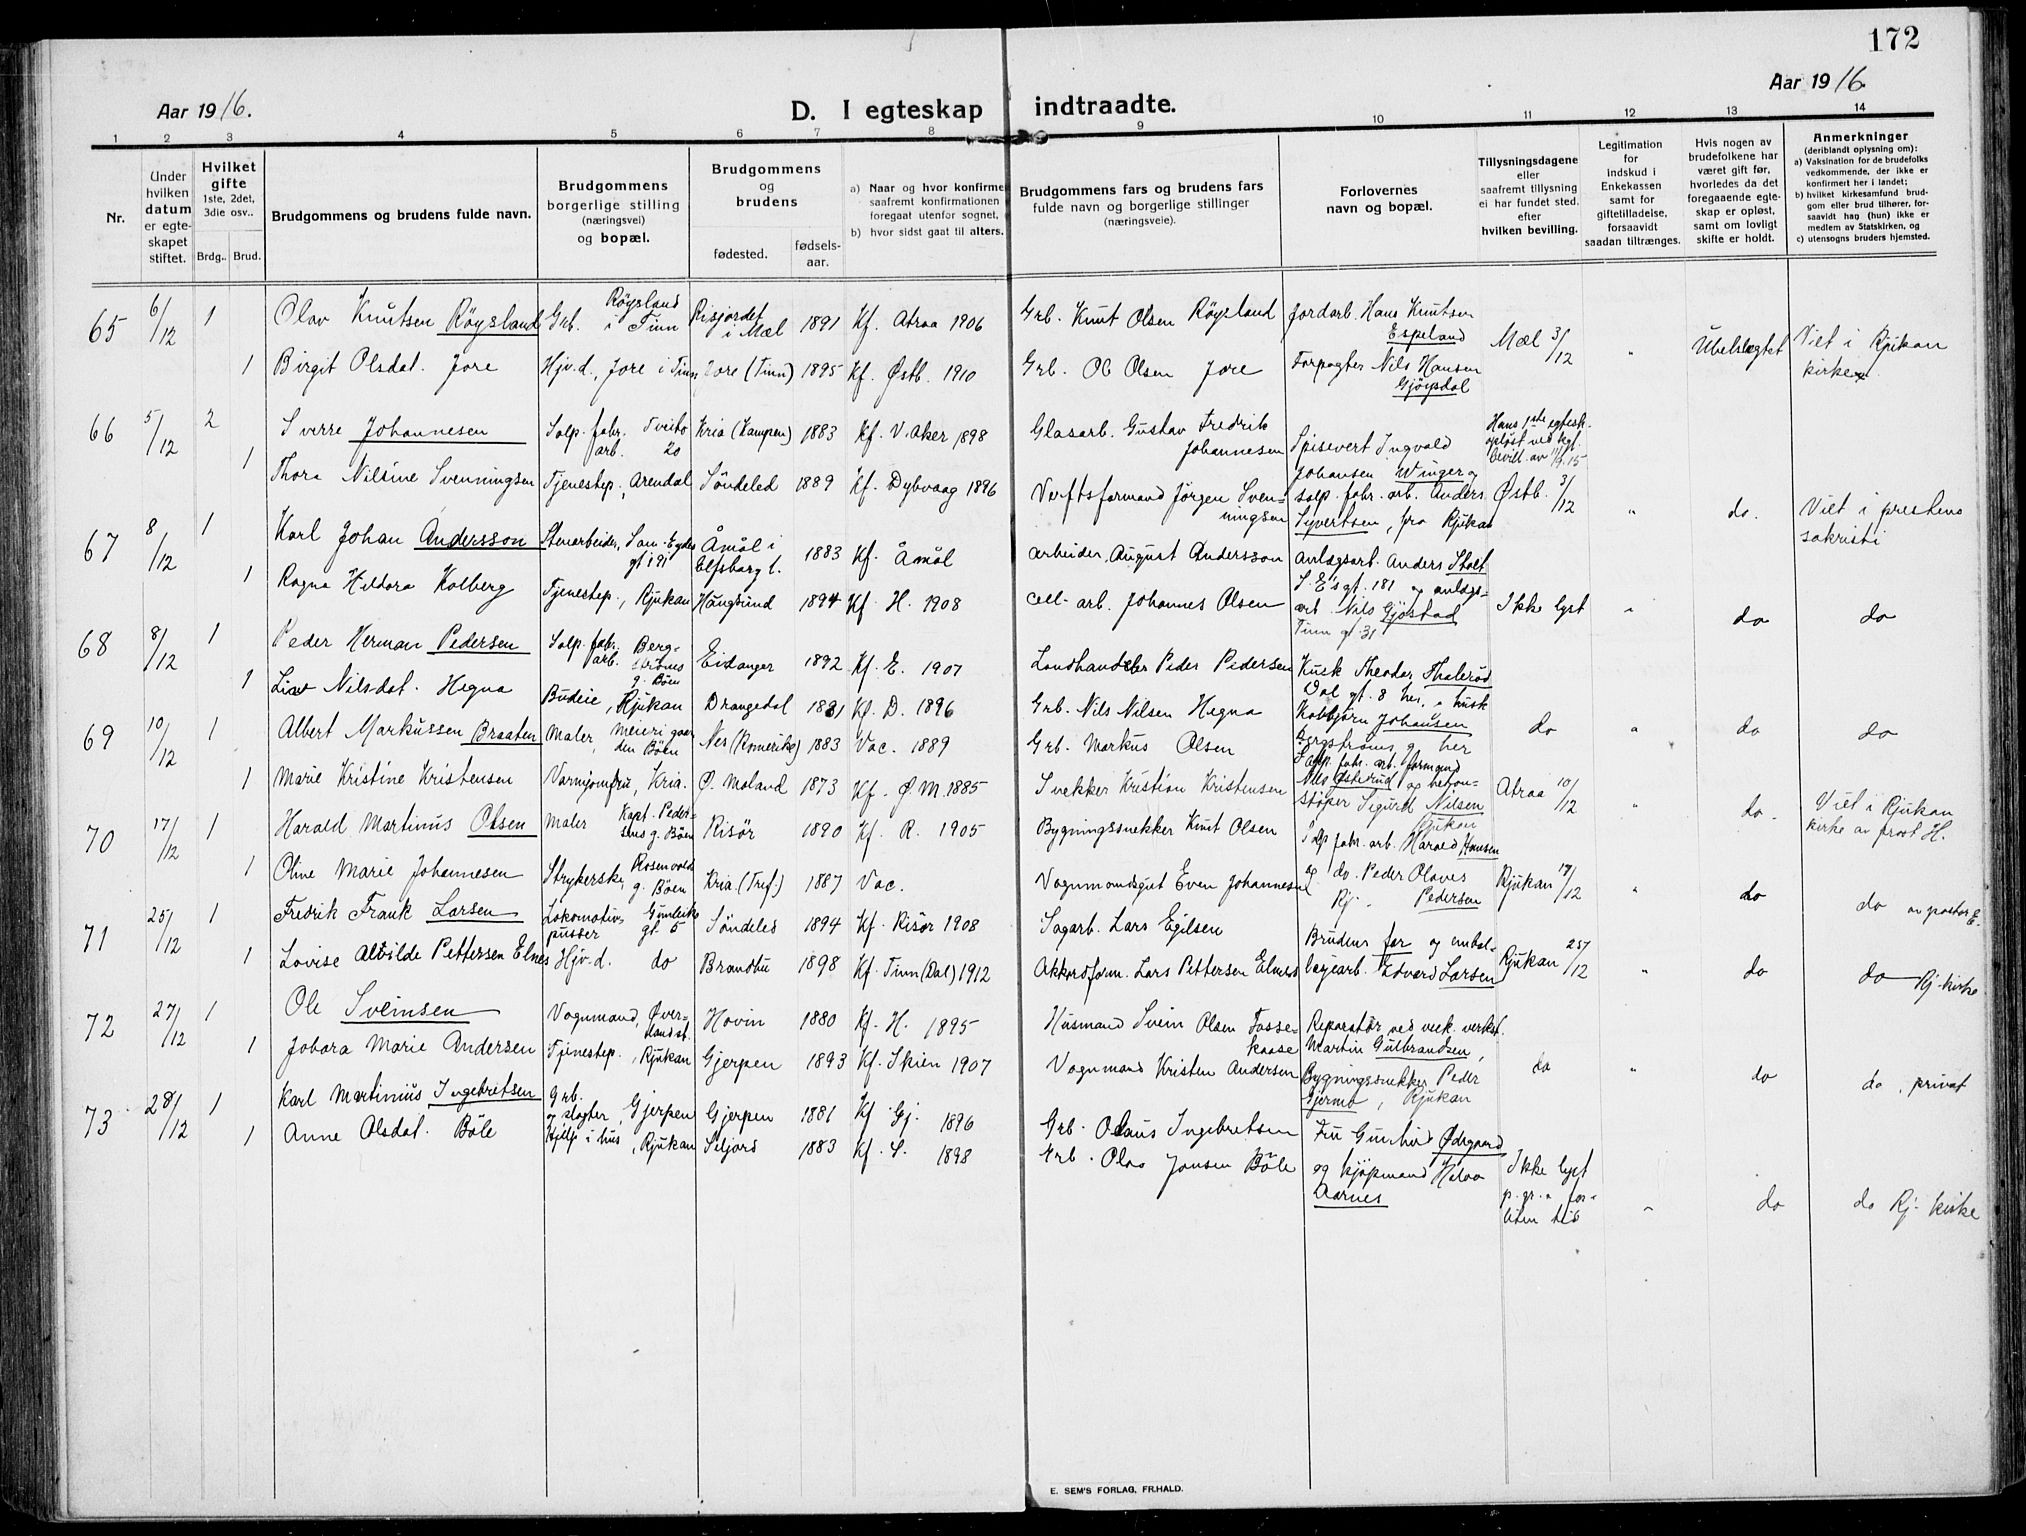 172
Aar 1916.
D. I egteskap indtraadte.
Aar 1916
1 2 3 4 5 6 7 8 9 10 11 12 13 14
Nr.
Under hvilken datum er egteskapet stiftet.
Hvilket gifte 1ste, 2det, 3die osv..
Brdg.. Brud.
Brudgommens og brudens fulde navn.
Brudgommens borgerlige stilling (næringsvei) og bopæl.
Brudgommens og brudens
fødested. fødsels-aar.
a) Naar og hvor konfirme
saafremt konfirmationen
foregaat utenfor sognet,
b) hvor sidst gaat til alters.
Brudgommens fars og brudens fars
fulde navn og borgerlige stillinger
(næringsveie).
Forlovernes
navn og bopæl.
Tillysningsdagene
eller
saafremt tillysning
ei har fundet sted,
efter
hvilken bevilling.
Legitimation
for
indskud i
Enkekassen
samt for
giftetilladelse,
forsaavidt
saadan tiltrænges.
Hvis nogen av
brudefolkene har
været gift før,
hvorledes da det
foregaaende egte-
skap er opløst,
samt om lovligt
skifte er holdt.
Anmerkninger
(deriblandt oplysning om):
a) Vaksination for de brudefolks
vedkommende, der ikke er
konfirmert her i landet;
b) hvilket kirkesamfund brud-
gom eller brud tilhører, for-
saavidt han (hun) ikke er
medlem av Statskirken, og
c) utensogns bruders hjemsted.
65 6/12 1 Olav Knutsen Röysland Grb. Röysland i Tinn Risjordet i Mæl 1891 Kf. Atraa 1906 Grb. Knut Olsen Röysland Jordarb. Hans Knutsen Espeland Mæl 3/12 " Ubeslegtet Viet i Rjukan kirke
1 Birgit Olsdat. Jore Hjv.d., Jore i Tinn Jore (Tinn) 1895 Kf. Østb. 1910 Grb. Ol Olsen Jore Forpagter Nils Hansen Gjöysdal
66 5/12 2 Sverre Johannesen Salp. fabr. arb. Tveito 20 Kria (Kampen) 1883 Kf. V. Aker 1898 Glasarb. Gustav Fredrik Johannesen Spisevert Ingvald Johansen Winger og Hans 1ste egtesk. opløst ved kgl. bevill. av
1 Thora Nilsine Svenningsen Tjenestep., Arendal Söndeled 1889 Kf. Dybvaag 1896 Verftsformand Jörgen Svenningsen salp. fabr. arb. Anders Syvertsen, fra Rjukan Østb. 3/12 " do. Viet i prestens sakristi
67 8/12 1 Karl Johan Andersson Stenarbeider, Sam. Eydes gt 191 Åmål i Elfsborg l. 1883 Kf. Åmål Arbeider August Andersson Anlægsarb. Anders Stolt S. E's gt. 181 og anlægs-
1 Ragna Heldora Kolberg Tjenestep., Rjukan Hångsund 1894 Kf. H. 1908 Cell. arb. Johannes Olsen arb. Nils Gjöstad Tinn gt. 31 Ikke lyst " do do
68 8/12 1 Peder Herman Pedersen Salp. fabr. arb. Bergströms g. Böen Eidanger 1892 Kf. E. 1907 Landhandler Peder Pedersen Kusk Theodor Thalerud Dal gt. 8 her, " kusk
1 Liv Nilsdat. Hegna Budeie, Rjukan Drangedal 1881 Kf. D. 1896 Grb. Nils Nilsen Hegna Kolbjörn Johansen Bergströms g. her do " do do
69 10/12 1 Albert Markussen Braaten Maler, Meierigaarden Böen Nes (Romerike) 1883 Vac. 1889 Grb. Markus Olsen Salp. fabr. arb. formand
1 Marie Kristine Kristensen Varnjomfru, Kria. Ø. Moland 1873 Kf. Ø M. 1885 Snekker Kristian Kristensen Nils Østerud og betonstöper Sigurd Nilsen Rjukan Atraa 10/12 " do. Viet i Rjukan kirke av prost H.
70 17/12 1 Harald Martinus Olsen Maler Kapt. Pedersens g. Böen Risör 1890 Kf. R. 1905 Bygningssnekker Knut Olsen Salp fabr. arb. Harald Hansen
1 Oline Marie Johannesen Strykerske, Rosenvolds g. Böen Kria. (Tref.) 1887 Vac. Vognmandsgut Even Johannesen og do. Peder Olaves Pedersen Rj. Rjukan 17/12 " do do av pastor E.
71 25/12 1 Fredrik Frank Larsen Lokomotivpusser Gunleiks gt 5 Söndeled 1894 Kf. Risör 1908 Sagarb. Lars Egilsen Brudens far og embal-
1 Lovise Alvilde Pettersen Elnes Hjv.d. do Brandbu 1898 Kf. Tinn (Dal) 1912 Akkordform. Lars Pettersen Elnes lagearb. Edvard Larsen Rjukan 25/12 " do do Rj. kirke
72 27/12 1 Ole Sveinsen Vognmand, Øverlandst. Hovin 1880 Kf. H. 1895 Husmand Svein Olsen Fossekaase Reparatör ved vek. verkst. Martin Gulbrandsen,
1 Johara Marie Andersen Tjenestep., Rjukan Gjerpen 1893 Kf. Skien 1907 Vognmand Kristen Andersen Bygningssnekker Peder Gjermo, Rjukan do " do do, privat
73 28/12 1 Karl Martinius Ingebretsen Grb. slagter, Gjerpen Gjerpen 1881 Kf Gj. 1896 Grb. Olaus Ingebretsen Fru Gunhild Ødegaard
1 Anne Olsdat. Böle Hjelp i hus, Rjukan Seljord 1883 Kf. S. 1898 Grb. Olav Jonsen Böle og kjöpmand Aarnes Ikke lyst p. gr. a. for-liten tid " do do Rj. kirke
E. SEM'S FORLAG, FR.HALD.